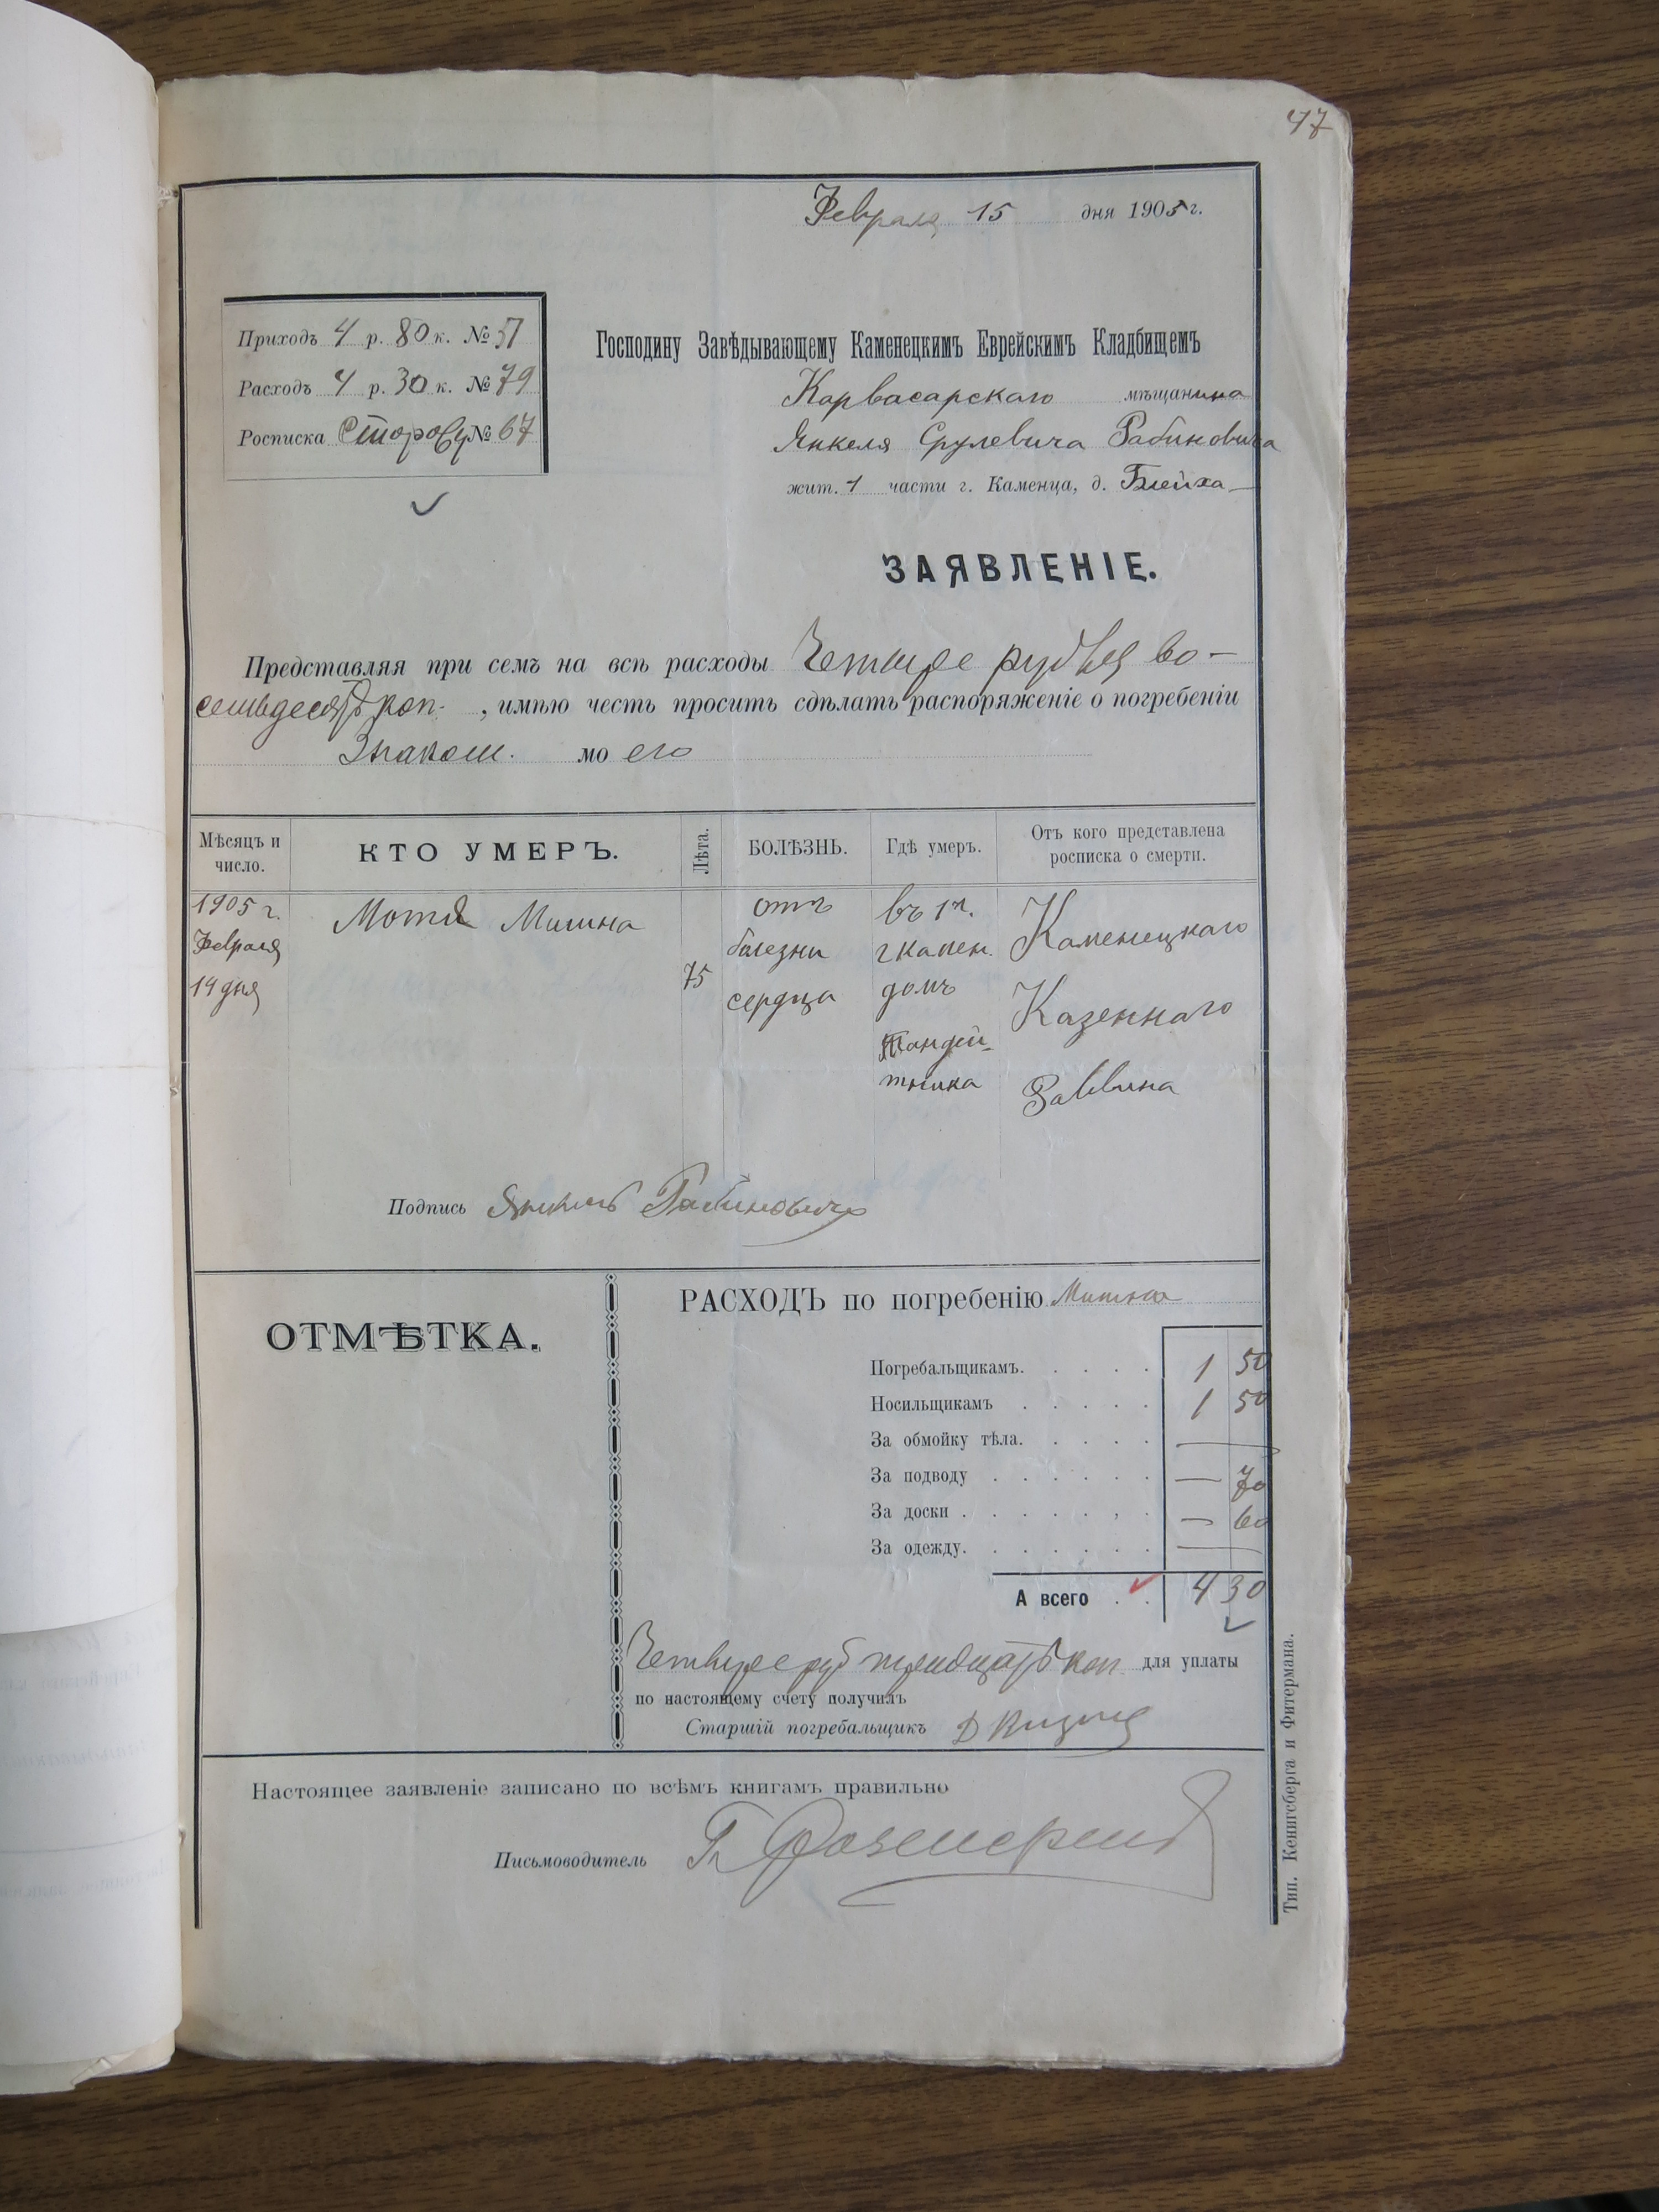 47
Февраля 15 дня 1905 г.
Приходъ 4 р. 80 к. № 51
Расходъ 4 р. 30 к. № 79
Росписка № 67
Господину Завѣдывающему Каменецкимъ Еврейскимъ Кладбищемъ
Карвасарскаго мѣщанина
Янкеля Срулевича Рабиновича
жит. 1 части г. Каменца, д. Блейха
ЗАЯВЛЕНІЕ.
Представляя при семъ на всѣ расходы Четыре рубля во-
семьдесятъ коп. , имѣю честь просить сдѣлать распоряженіе о погребеніи
Знаком. мо его
Мѣсяцъ и число.
КТО УМЕРЪ.
Лѣта.
БОЛѢЗНЬ.
Гдѣ умеръ.
Отъ кого представлена росписка о смерти.
1905 г.
Февраля
14 дня
Мотя
75
отъ
болезни
сердца
въ 1 ч.
г Камен.
домъ
Каменецкаго
Казеннаго
Раввина
Подпись Янкель Рабиновичъ
ОТМѢТКА.
РАСХОДЪ по погребенію
Погребальщикамъ. 1 50
Носильщикамъ 1 50
За обмойку тѣла. —
За подводу — 70
За доски — 60
За одежду. —
А всего 4 30
Четыре руб тридцать коп для уплаты
по настоящему счету получилъ
Старшій погребальщикъ
Настоящее заявленіе записано по всѣмъ книгамъ правильно
Письмоводитель
Тип. Кенигсберга и Фитермана.